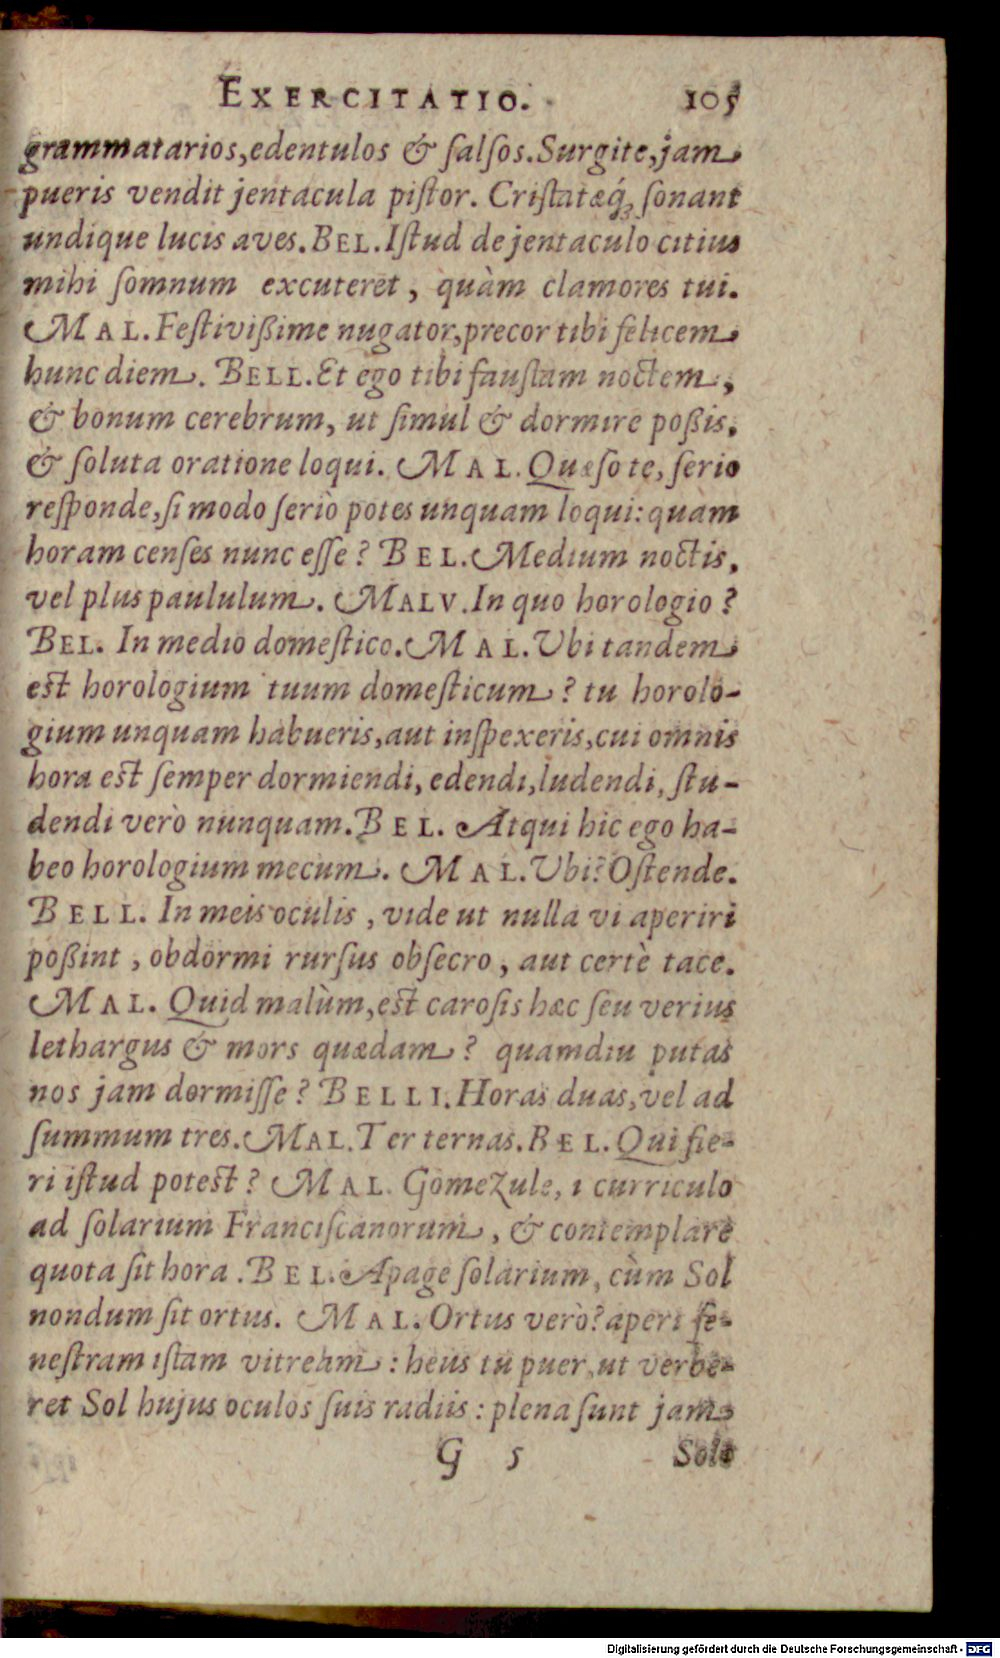 EXERCITATIO. 105
grammatarios, edentulos & salsos. Surgite, jam
pueris vendit jentacula pistor. Cristatæq́; sonant
undique lucis aves. BEL. Istud de jentaculo citius
mihi somnum excuteret, quàm clamores tui.
MAL. Festivißime nugator, precor tibi felicem
hunc diem. BELL. Et ego tibi faustam noctem,
& bonum cerebrum, ut simul & dormire poßis,
& soluta oratione loqui. MAL. Quæso te, serio
responde, si modo seriò potes unquam loqui: quàm
horam censes nunc esse? BEL. Medium noctis,
vel plus paululum. MALV. In quo horologio?
BEL. In medio domestico. MAL. Ubi tandem
est horologium tuum domesticum? tu horolo-
gium unquam habueris, aut inspexeris, cui omnis
hora est semper dormiendi, edendi, ludendi, stu-
dendi verò nunquam. BEL. Atqui hic ego ha-
beo horologium mecum. MAL. Ubi? Ostende.
BELL. In meis oculis, vide ut nulla vi aperiri
poßint, obdormi rursus obsecro, aut certè tace.
MAL. Quid malùm, est carosis hæc seu verius
lethargus & mors quædam? quamdiu putas
nos jam dormisse? BELLI. Horas duas, vel ad
summum tres. MAL. Ter ternas. BEL. Qui fie-
ri istud potest? MAL. Gomezule, i curriculo
ad solarium Franciscanorum, & contemplare
quota sit hora. BEL. Apage solarium, cùm Sol
nondum sit ortus. MAL. Ortus verò? aperi fe-
nestram istam vitream: heus tu puer, ut verbe-
ret Sol hujus oculos suis radiis: plena sunt jam
G 5 Sole
Digitalisierung gefördert durch die Deutsche Forschungsgemeinschaft - DFG